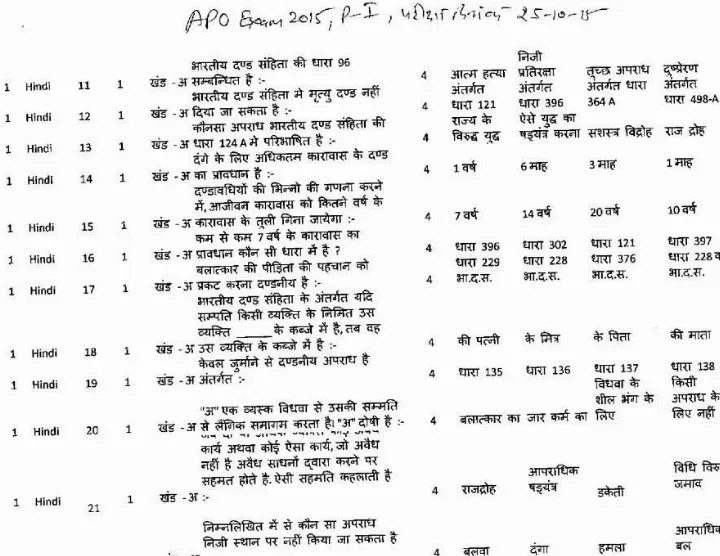 APO Exam 2015, P-I, परीक्षा दिनांक 25-10-15
भारतीय दण्ड संहिता की धारा 96
निजी
1 Hindi 11 1 खंड - अ सम्बन्धित है :- 4 आत्म हत्या प्रतिरक्षा तुच्छ अपराध दुष्प्रेरण
अंतर्गत अंतर्गत अंतर्गत धारा अंतर्गत
भारतीय दण्ड संहिता मे मृत्यु दण्ड नहीं
1 Hindi 12 1 खंड - अ दिया जा सकता है :- 4 धारा 121 धारा 396 364 A धारा 498-A
कौनसा अपराध भारतीय दण्ड संहिता की राज्य के ऐसे युद्ध का
1 Hindi 13 1 खंड - अ धारा 124 A मे परिभाषित है :- 4 विरुद्ध युद्ध षड्यंत्र करना सशस्त्र विद्रोह राज द्रोह
दंगे के लिए अधिकतम कारावास के दण्ड
1 Hindi 14 1 खंड - अ का प्रावधान है :- 4 1 वर्ष 6 माह 3 माह 1 माह
दण्डावधियों की भिन्नो की गणना करने
में, आजीवन कारावास को कितने वर्ष के
1 Hindi 15 1 खंड - अ कारावास के तुली गिना जायेगा :- 4 7 वर्ष 14 वर्ष 20 वर्ष 10 वर्ष
कम से कम 7 वर्ष के कारावास का
1 Hindi 16 1 खंड - अ प्रावधान कौन सी धारा में है ? 4 धारा 396 धारा 302 धारा 121 धारा 397
बलात्कार की पीड़िता की पहचान को धारा 229 धारा 228 धारा 376 धारा 228
1 Hindi 17 1 खंड - अ प्रकट करना दण्डनीय है :- 4 भा.द.स. भा.द.स. भा.द.स. भा.द.स.
भारतीय दण्ड संहिता के अंतर्गत यदि
सम्पति किसी व्यक्ति के निमित उस
व्यक्ति ______ के कब्जे में है, तब वह
1 Hindi 18 1 खंड - अ उस व्यक्ति के कब्जे में है :- 4 की पत्नी के मित्र के पिता की माता
केवल जुर्माने से दण्डनीय अपराध है
1 Hindi 19 1 खंड - अ अंतर्गत :- 4 धारा 135 धारा 136 धारा 137 धारा 138
विधवा के किसी
"अ" एक व्यस्क विधवा से उसकी सम्मति शील भंग के अपराध के
1 Hindi 20 1 खंड - अ से लैंगिक समागम करता है। "अ" दोषी है :- 4 बलात्कार का जार कर्म का लिए लिए नहीं
कार्य अथवा कोई ऐसा कार्य, जो अवैध
नहीं है अवैध साधनों द्वारा करने पर
सहमत होते है. ऐसी सहमति कहलाती है आपराधिक विधि विरु
1 Hindi 21 1 खंड - अ :- 4 राजद्रोह षड्यंत्र डकेती जमाव
निम्नलिखित में से कौन सा अपराध
निजी स्थान पर नहीं किया जा सकता है 4 बलवा दंगा हमला आपराधिक बल